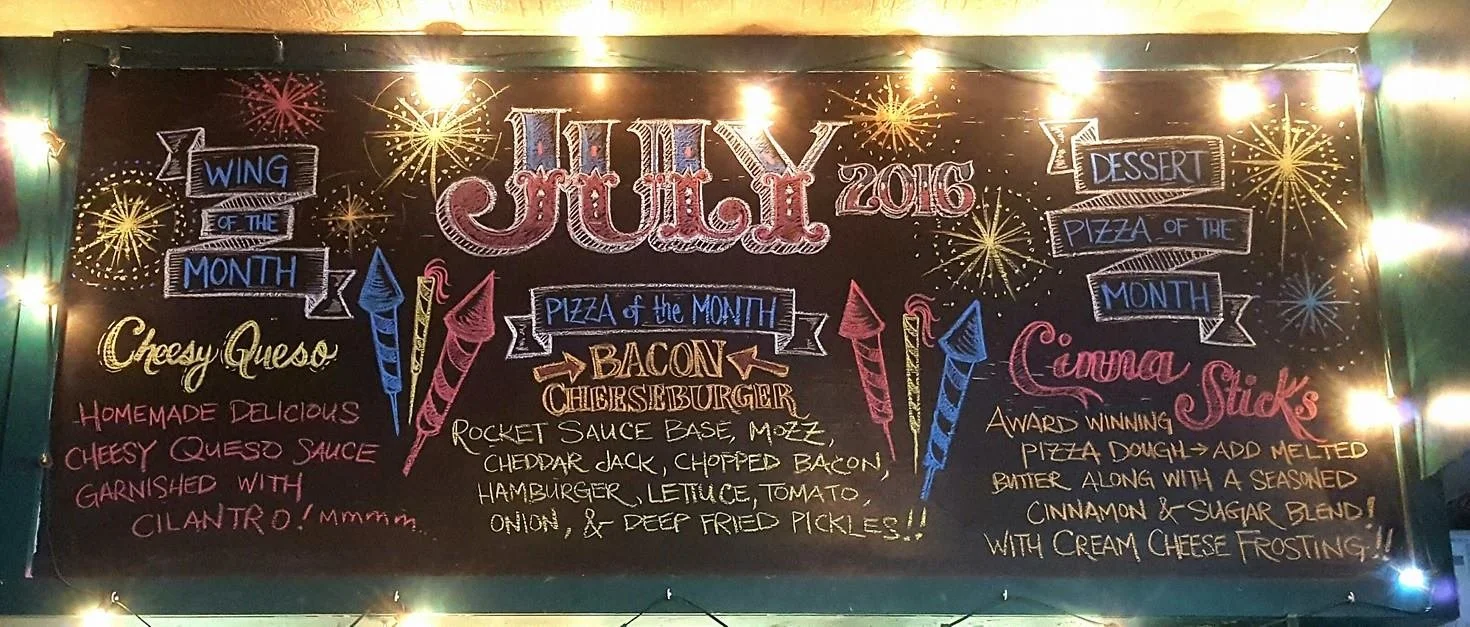 JULY 2016
WING
OF THE
MONTH
Cheesy Queso
HOMEMADE DELICIOUS
CHEESY QUESO SAUCE
GARNISHED WITH
CILANTRO! Mmmm...
PIZZA of the MONTH
BACON
CHEESEBURGER
ROCKET SAUCE BASE, MOZZ,
CHEDDAR JACK, CHOPPED BACON,
HAMBURGER, LETTUCE, TOMATO,
ONION, & DEEP FRIED PICKLES!!
DESSERT
PIZZA OF THE
MONTH
Cinna
Sticks
AWARD WINNING
PIZZA DOUGH→ADD MELTED
BUTTER ALONG WITH A SEASONED
CINNAMON & SUGAR BLEND!
WITH CREAM CHEESE FROSTING!!